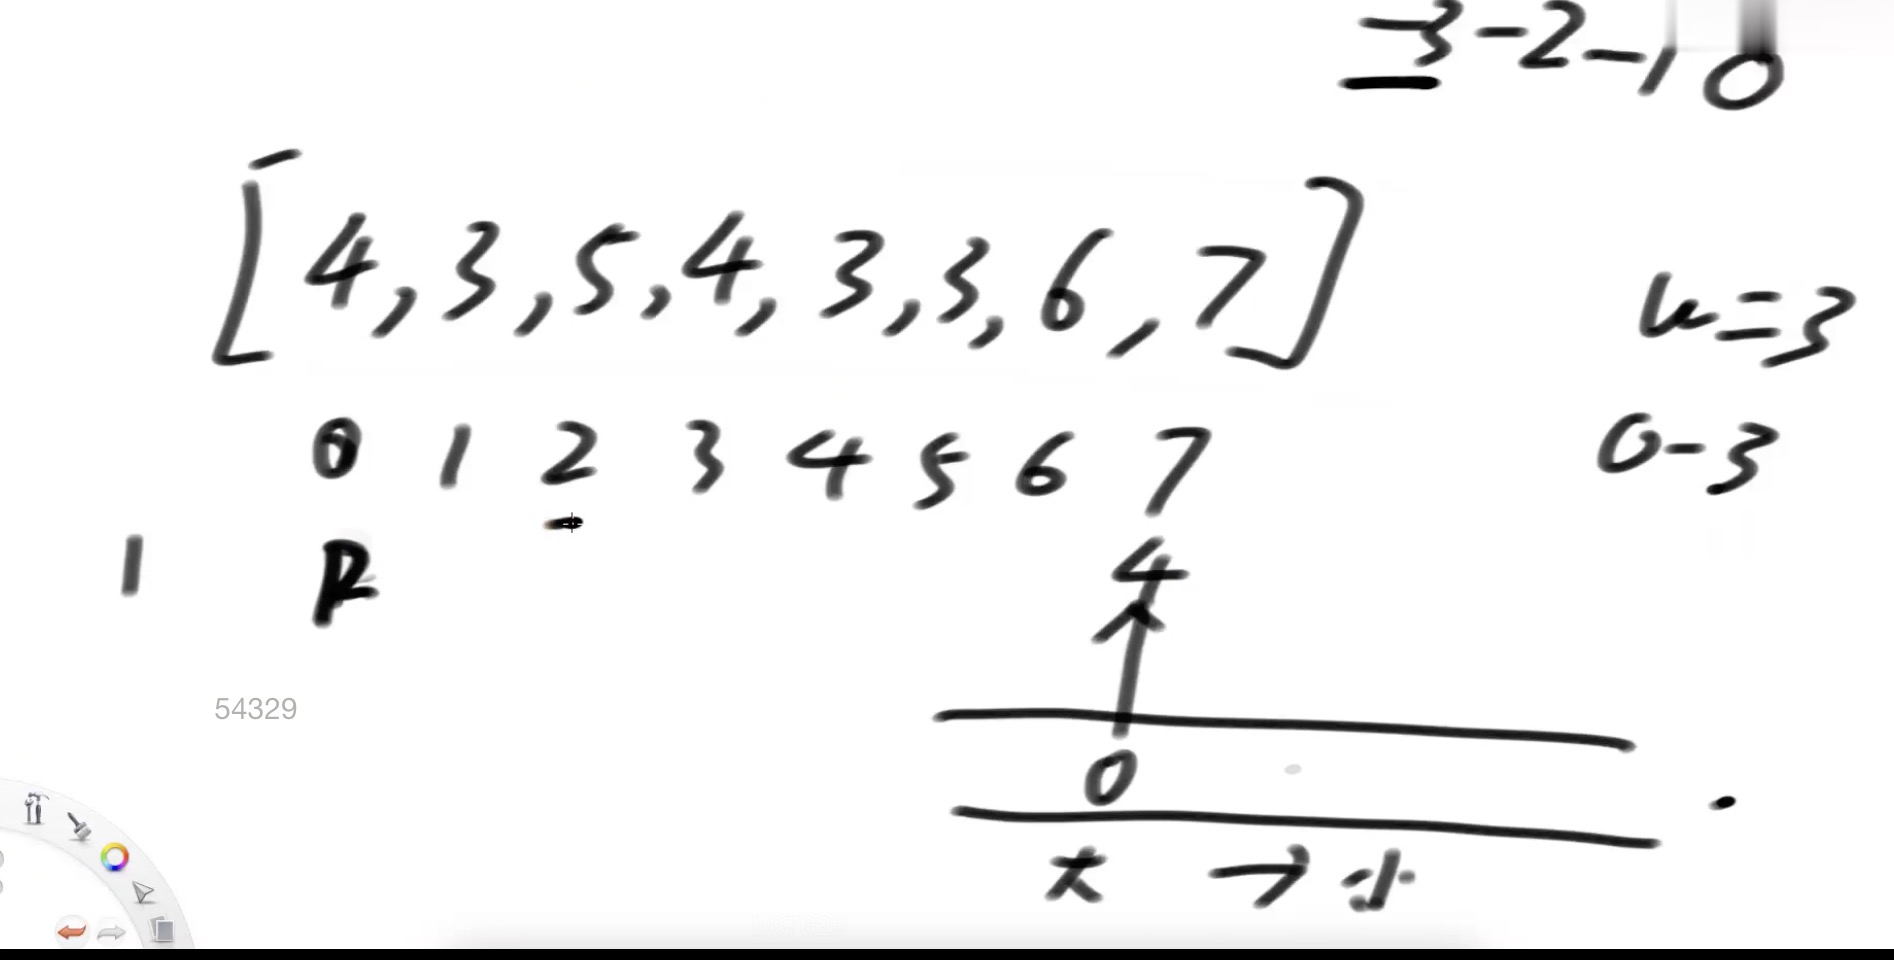 -3-2-10
[4,3,5,4,3,3,6,7]
w=3
0 1 2 3 4 5 6 7
0-3
1 R
4
54329
0
大 → 小